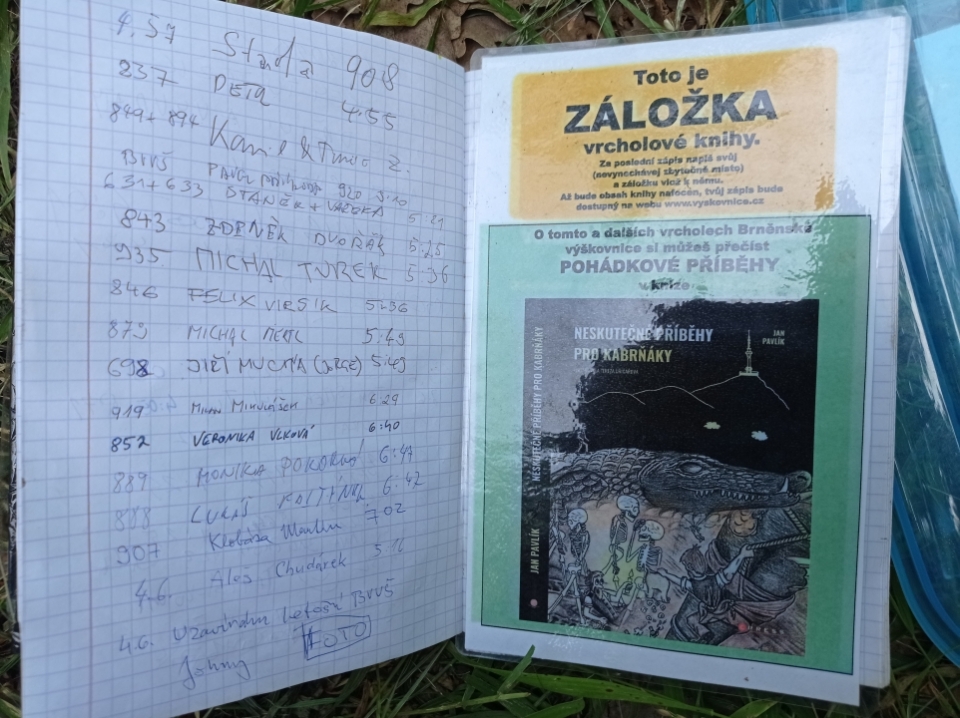 4.57 Standa 908
237 PETR 4:55
849+894 Kamil & Z.
BVVŠ 920
631+633 STANĚK + 5:21
843 ZDENĚK DVOŘÁK 5:25
935 MICHAL TUREK 5:36
846 FELIX 5:36
873 MICHAL 5:49
698 JIŘÍ MUCHA 5:49
919 6:29
852 VERONIKA VLKOVÁ 6:40
889 MONIKA POKORNÁ 6:47
888 LUKÁŠ 6:42
907 702
4.6. Aleš Chudárek
4.6. Uzavírám letošní BVVŠ
Johny FOTO
Toto je
ZÁLOŽKA
vrcholové knihy.
Za poslední zápis napiš svůj
(nevynechávej zbytečně místo)
a záložku vlož k němu.
Až bude obsah knihy nafocen, tvůj zápis bude
dostupný na webu www.vyskovnice.cz
O tomto a dalších vrcholech Brněnské
výškovnice si můžeš přečíst
POHÁDKOVÉ PŘÍBĚHY
v knize
NESKUTEČNÉ PŘÍBĚHY
PRO KABRŇÁKY
JAN
PAVLÍK
JAN PAVLÍK NESKUTEČNÉ PŘÍBĚHY PRO KABRŇÁKY